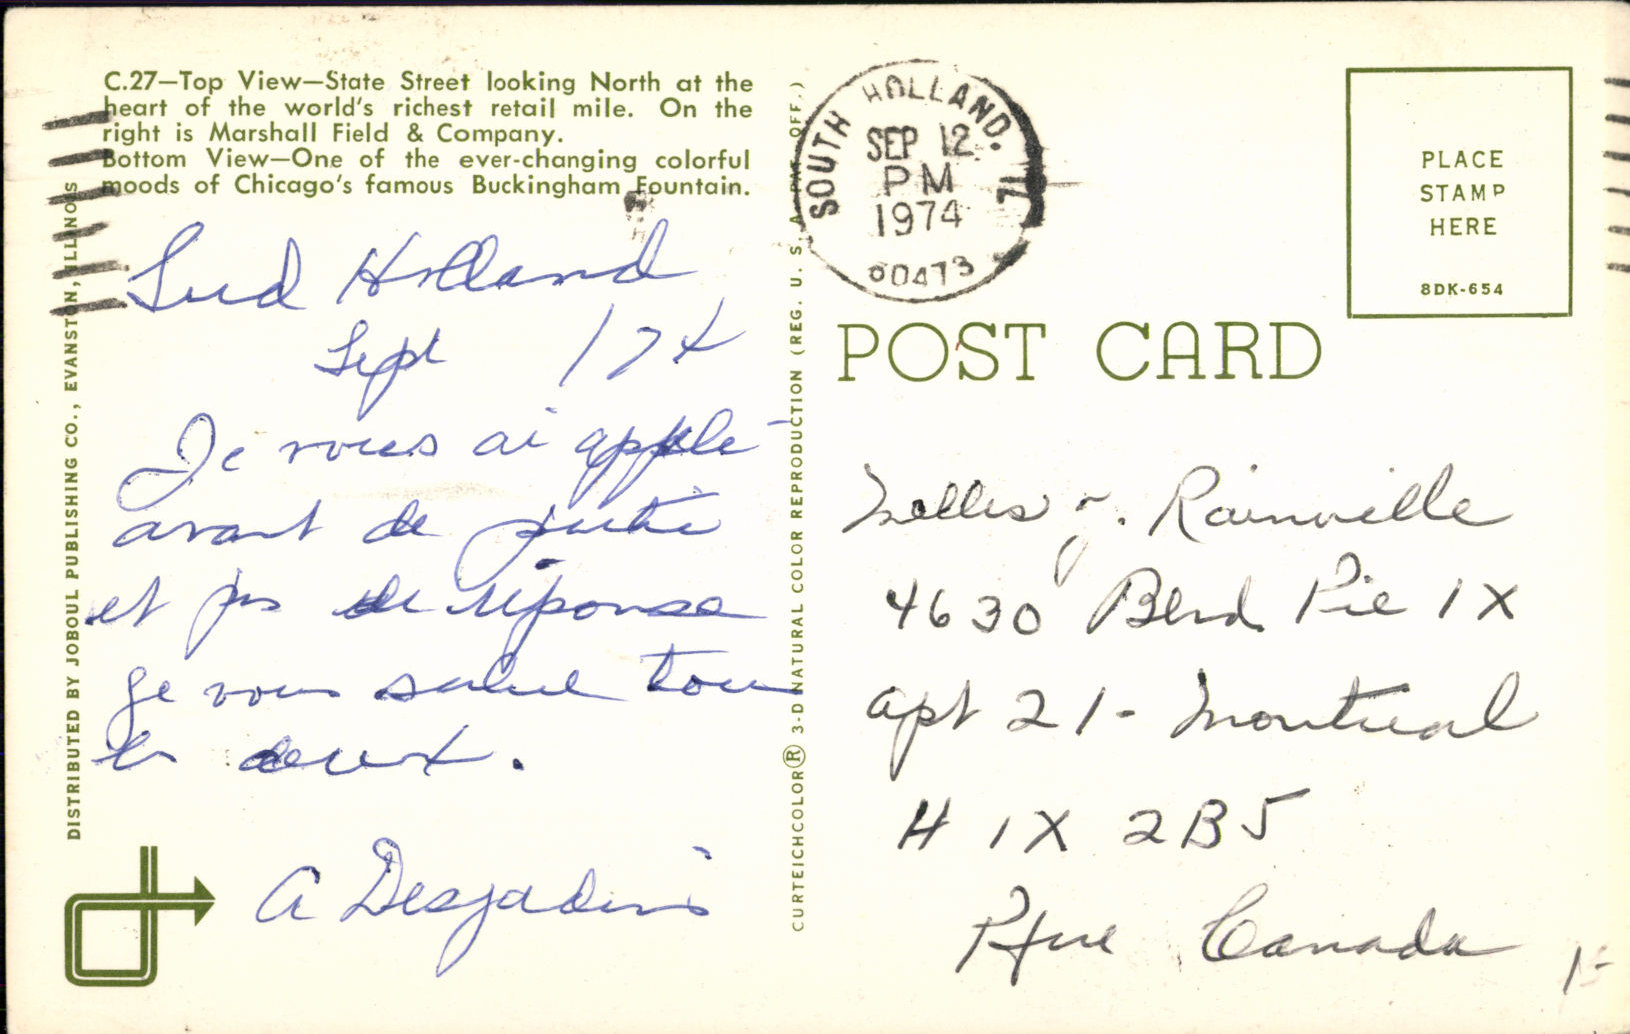 C.27—Top View—State Street looking North at the
heart of the world's richest retail mile. On the
right is Marshall Field & Company.
Bottom View—One of the ever-changing colorful
moods of Chicago's famous Buckingham Fountain.
Sud Holland
Sept 174
Je vous ai applé
avant de
et pas de réponse
je vous salue tou
les deux.
A Desjadins
DISTRIBUTED BY JOBOUL PUBLISHING CO., EVANSTON, ILLINOIS
CURTEICHCOLOR® 3-D NATURAL COLOR REPRODUCTION (REG. U. S. A. PAT. OFF.)
SOUTH HOLLAND, IL
SEP 12
PM
1974
60473
PLACE
STAMP
HERE
8DK-654
POST CARD
Rainville
4630 Blvd. Pie IX
apt 21- Montreal
H 1X 2B5
Canada